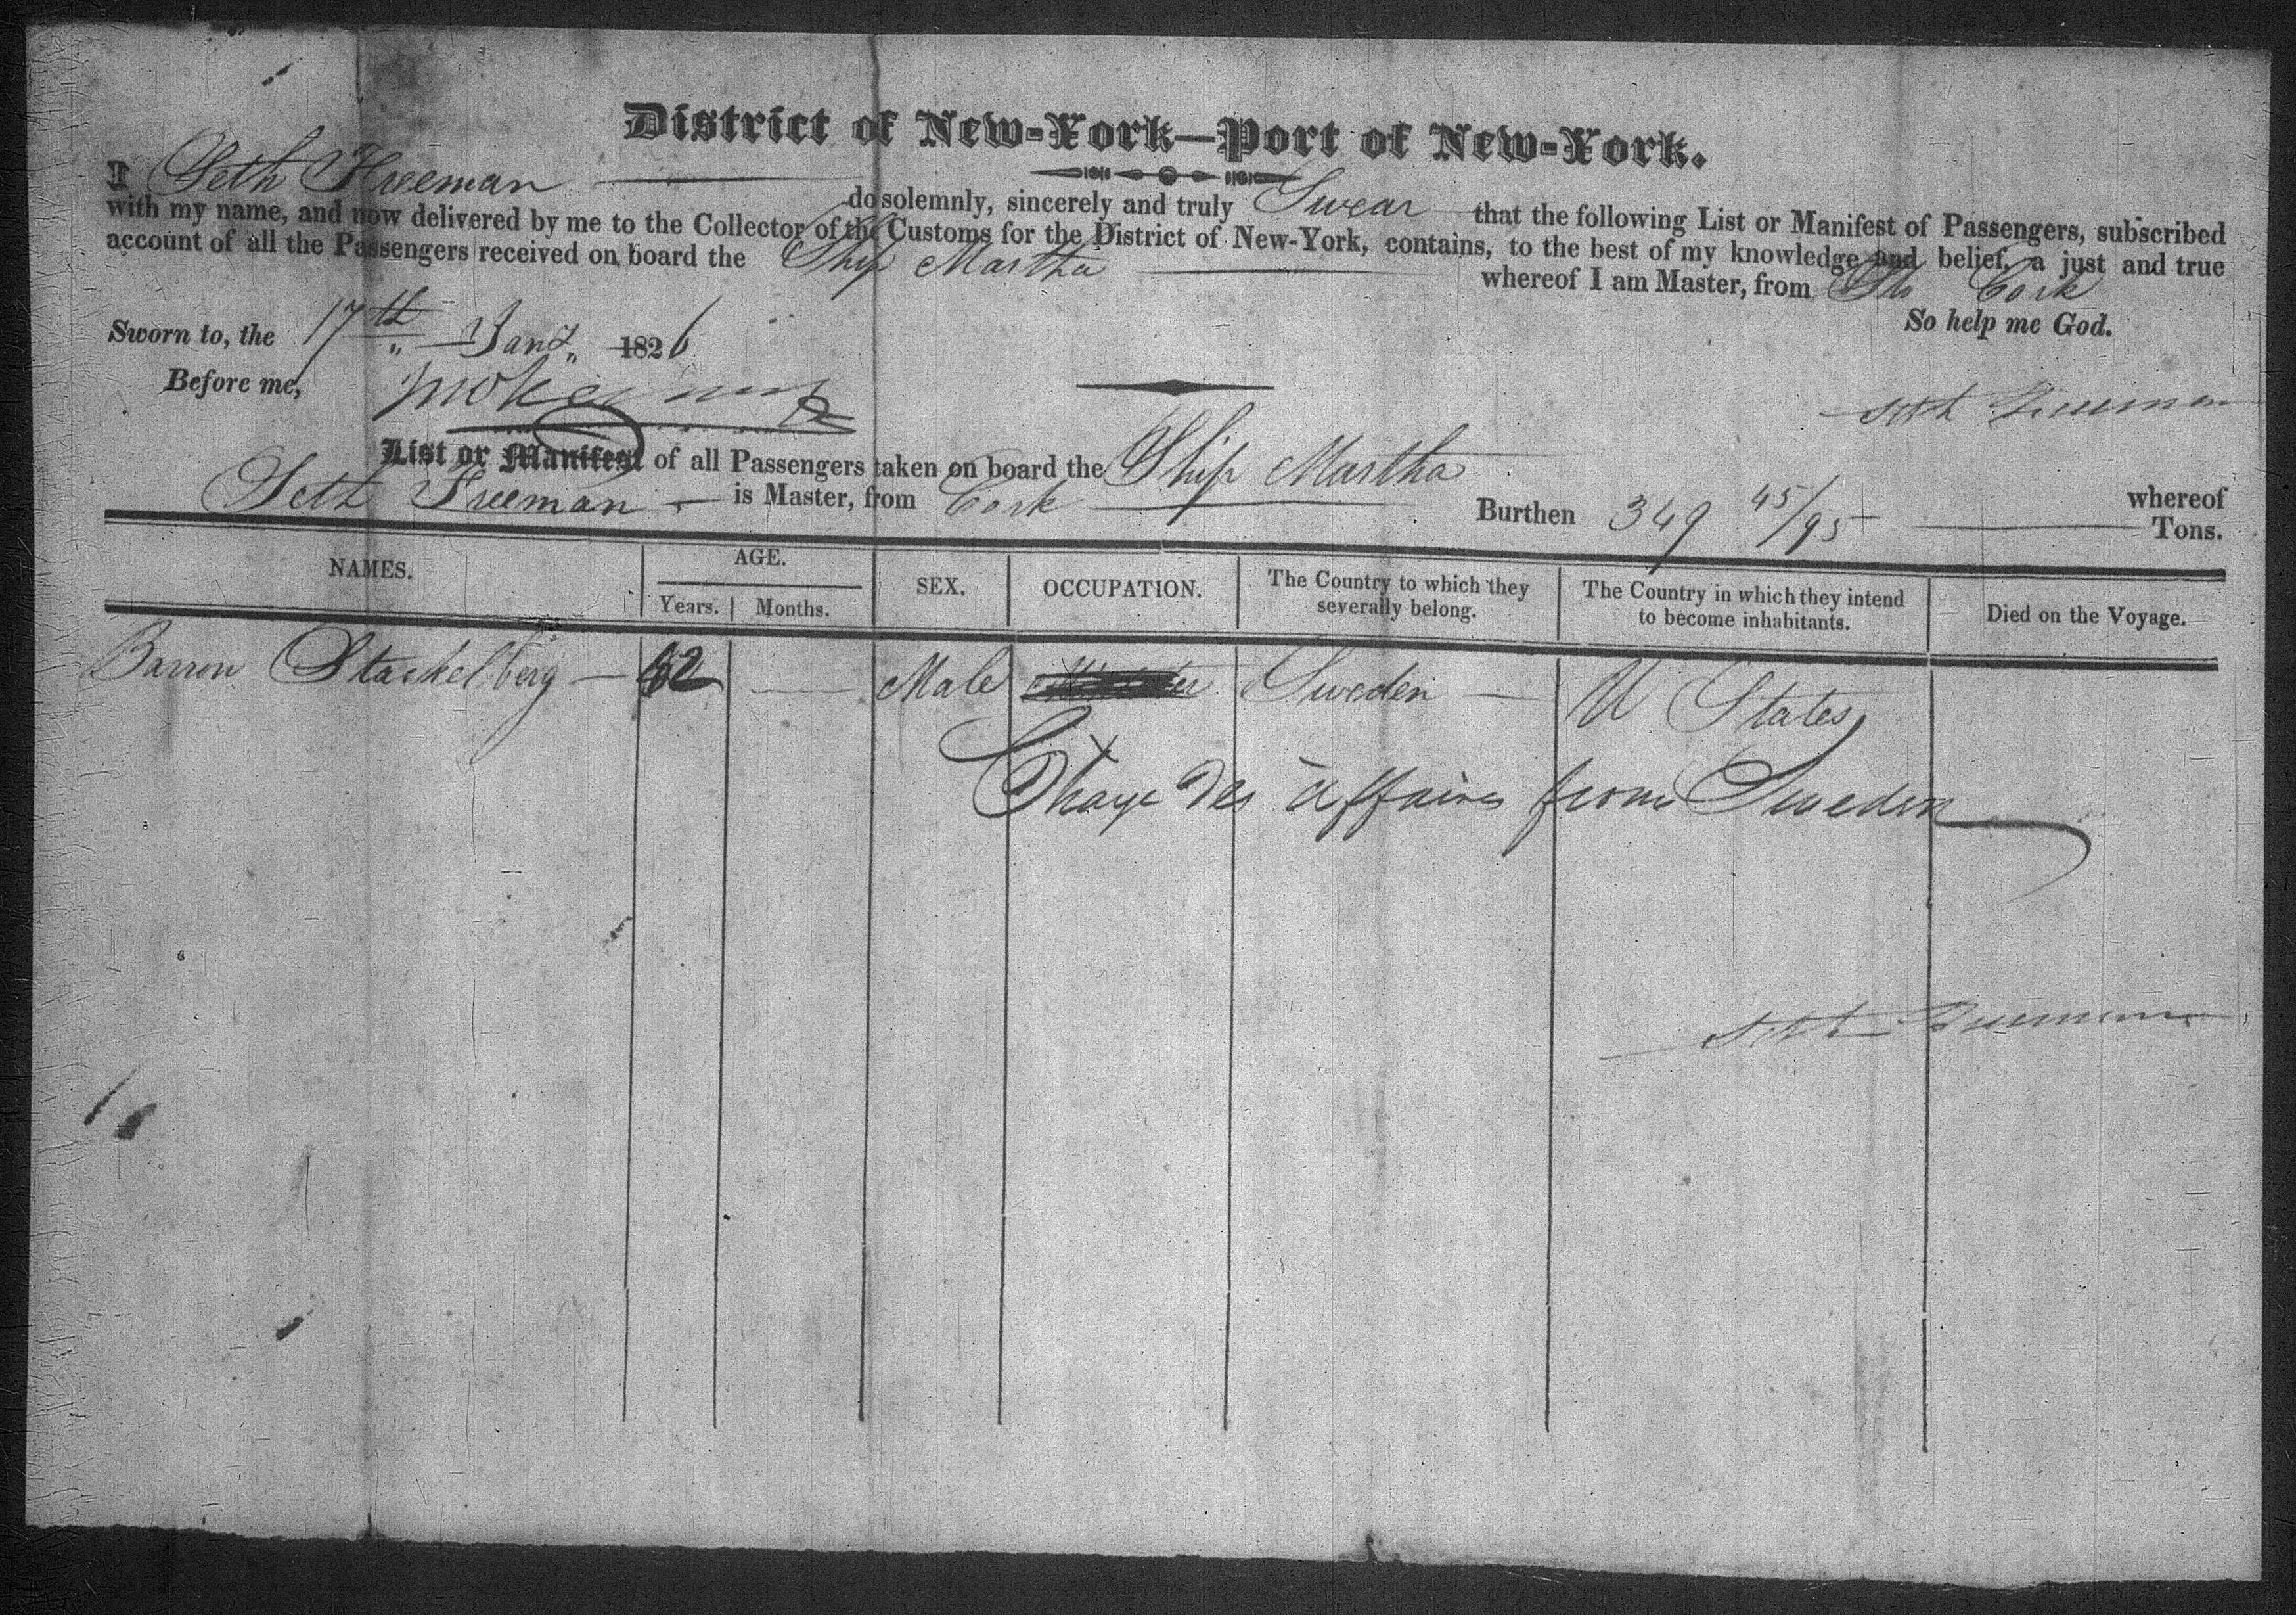 District of New-York—Port of New-York.
I Seth Freeman do solemnly, sincerely and truly Swear that the following List or Manifest of Passengers, subscribed
with my name, and now delivered by me to the Collector of the Customs for the District of New-York, contains, to the best of my knowledge and belief, a just and true
account of all the Passengers received on board the Ship Martha whereof I am Master, from Cork
So help me God.
Sworn to, the 17th Jany 1826
Before me,
Seth Freeman
List or Manifest of all Passengers taken on board the Ship Martha whereof
Seth Freeman is Master, from Cork Burthen 349 45/95 Tons.
NAMES. AGE. SEX. OCCUPATION. The Country to which they severally belong. The Country in which they intend to become inhabitants. Died on the Voyage.
Years. Months.
Barron Stackelberg Male Sweden U States
Charge des affaires from Sweden
Seth Freeman